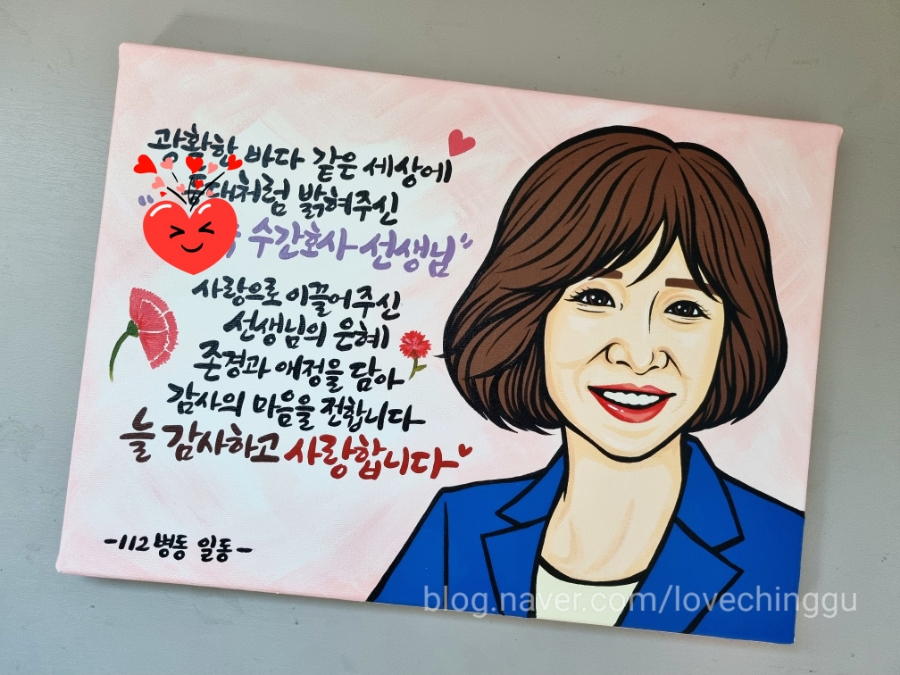 광활한 바다 같은 세상에
등대처럼 밝혀주신
" 수간호사 선생님"
사랑으로 이끌어주신
선생님의 은혜
존경과 애정을 담아
감사의 마음을 전합니다
늘 감사하고 사랑합니다
-112병동 일동-
blog.naver.com/lovechinggu